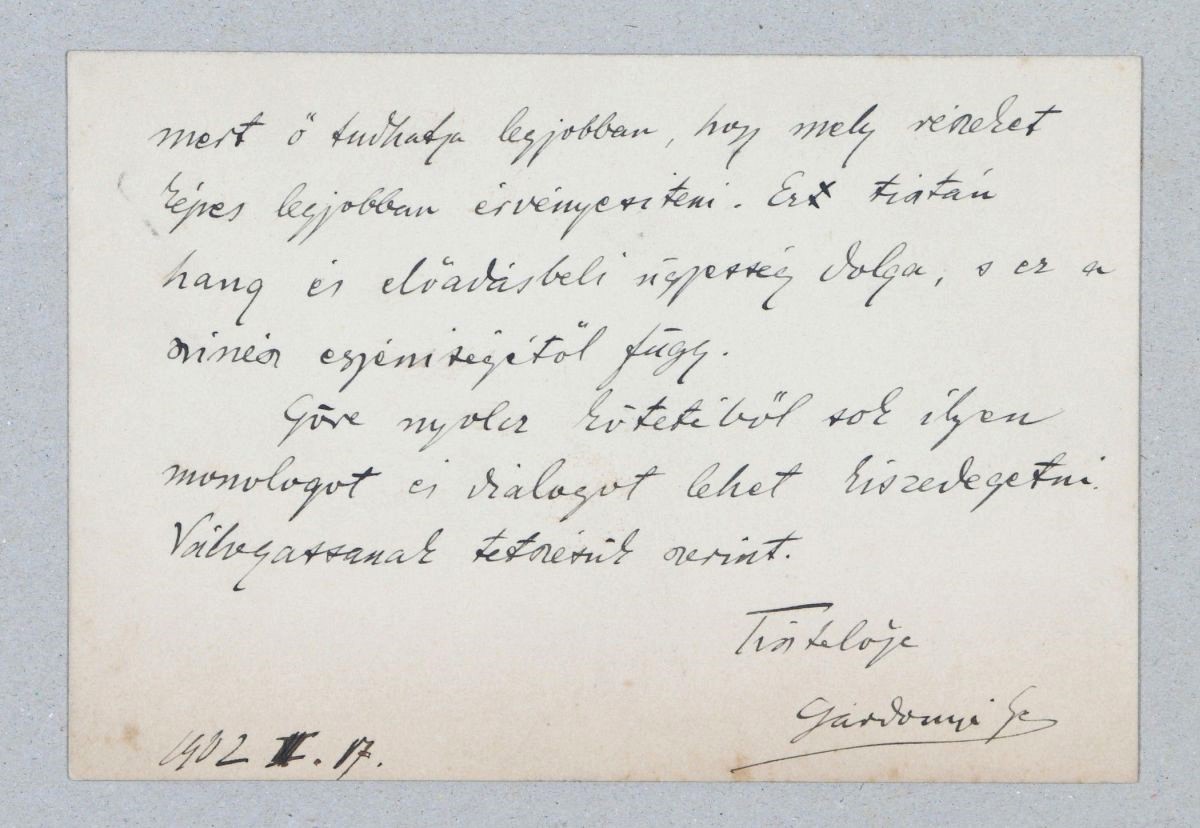 mert ő tudhatja legjobban, hogy mely részeket
képes legjobban érvényesiteni. Ez tisztán
hang és előadásbeli ügyesség dolga, s ez a
szinész egyéniségétől függ.
Göre nyolcz kötetéből sok ilyen
monologot és dialogot lehet kiszedegetni.
Válogassanak tetszésük szerint.
Tisztelője
Gárdonyi Géza
1902 II. 17.